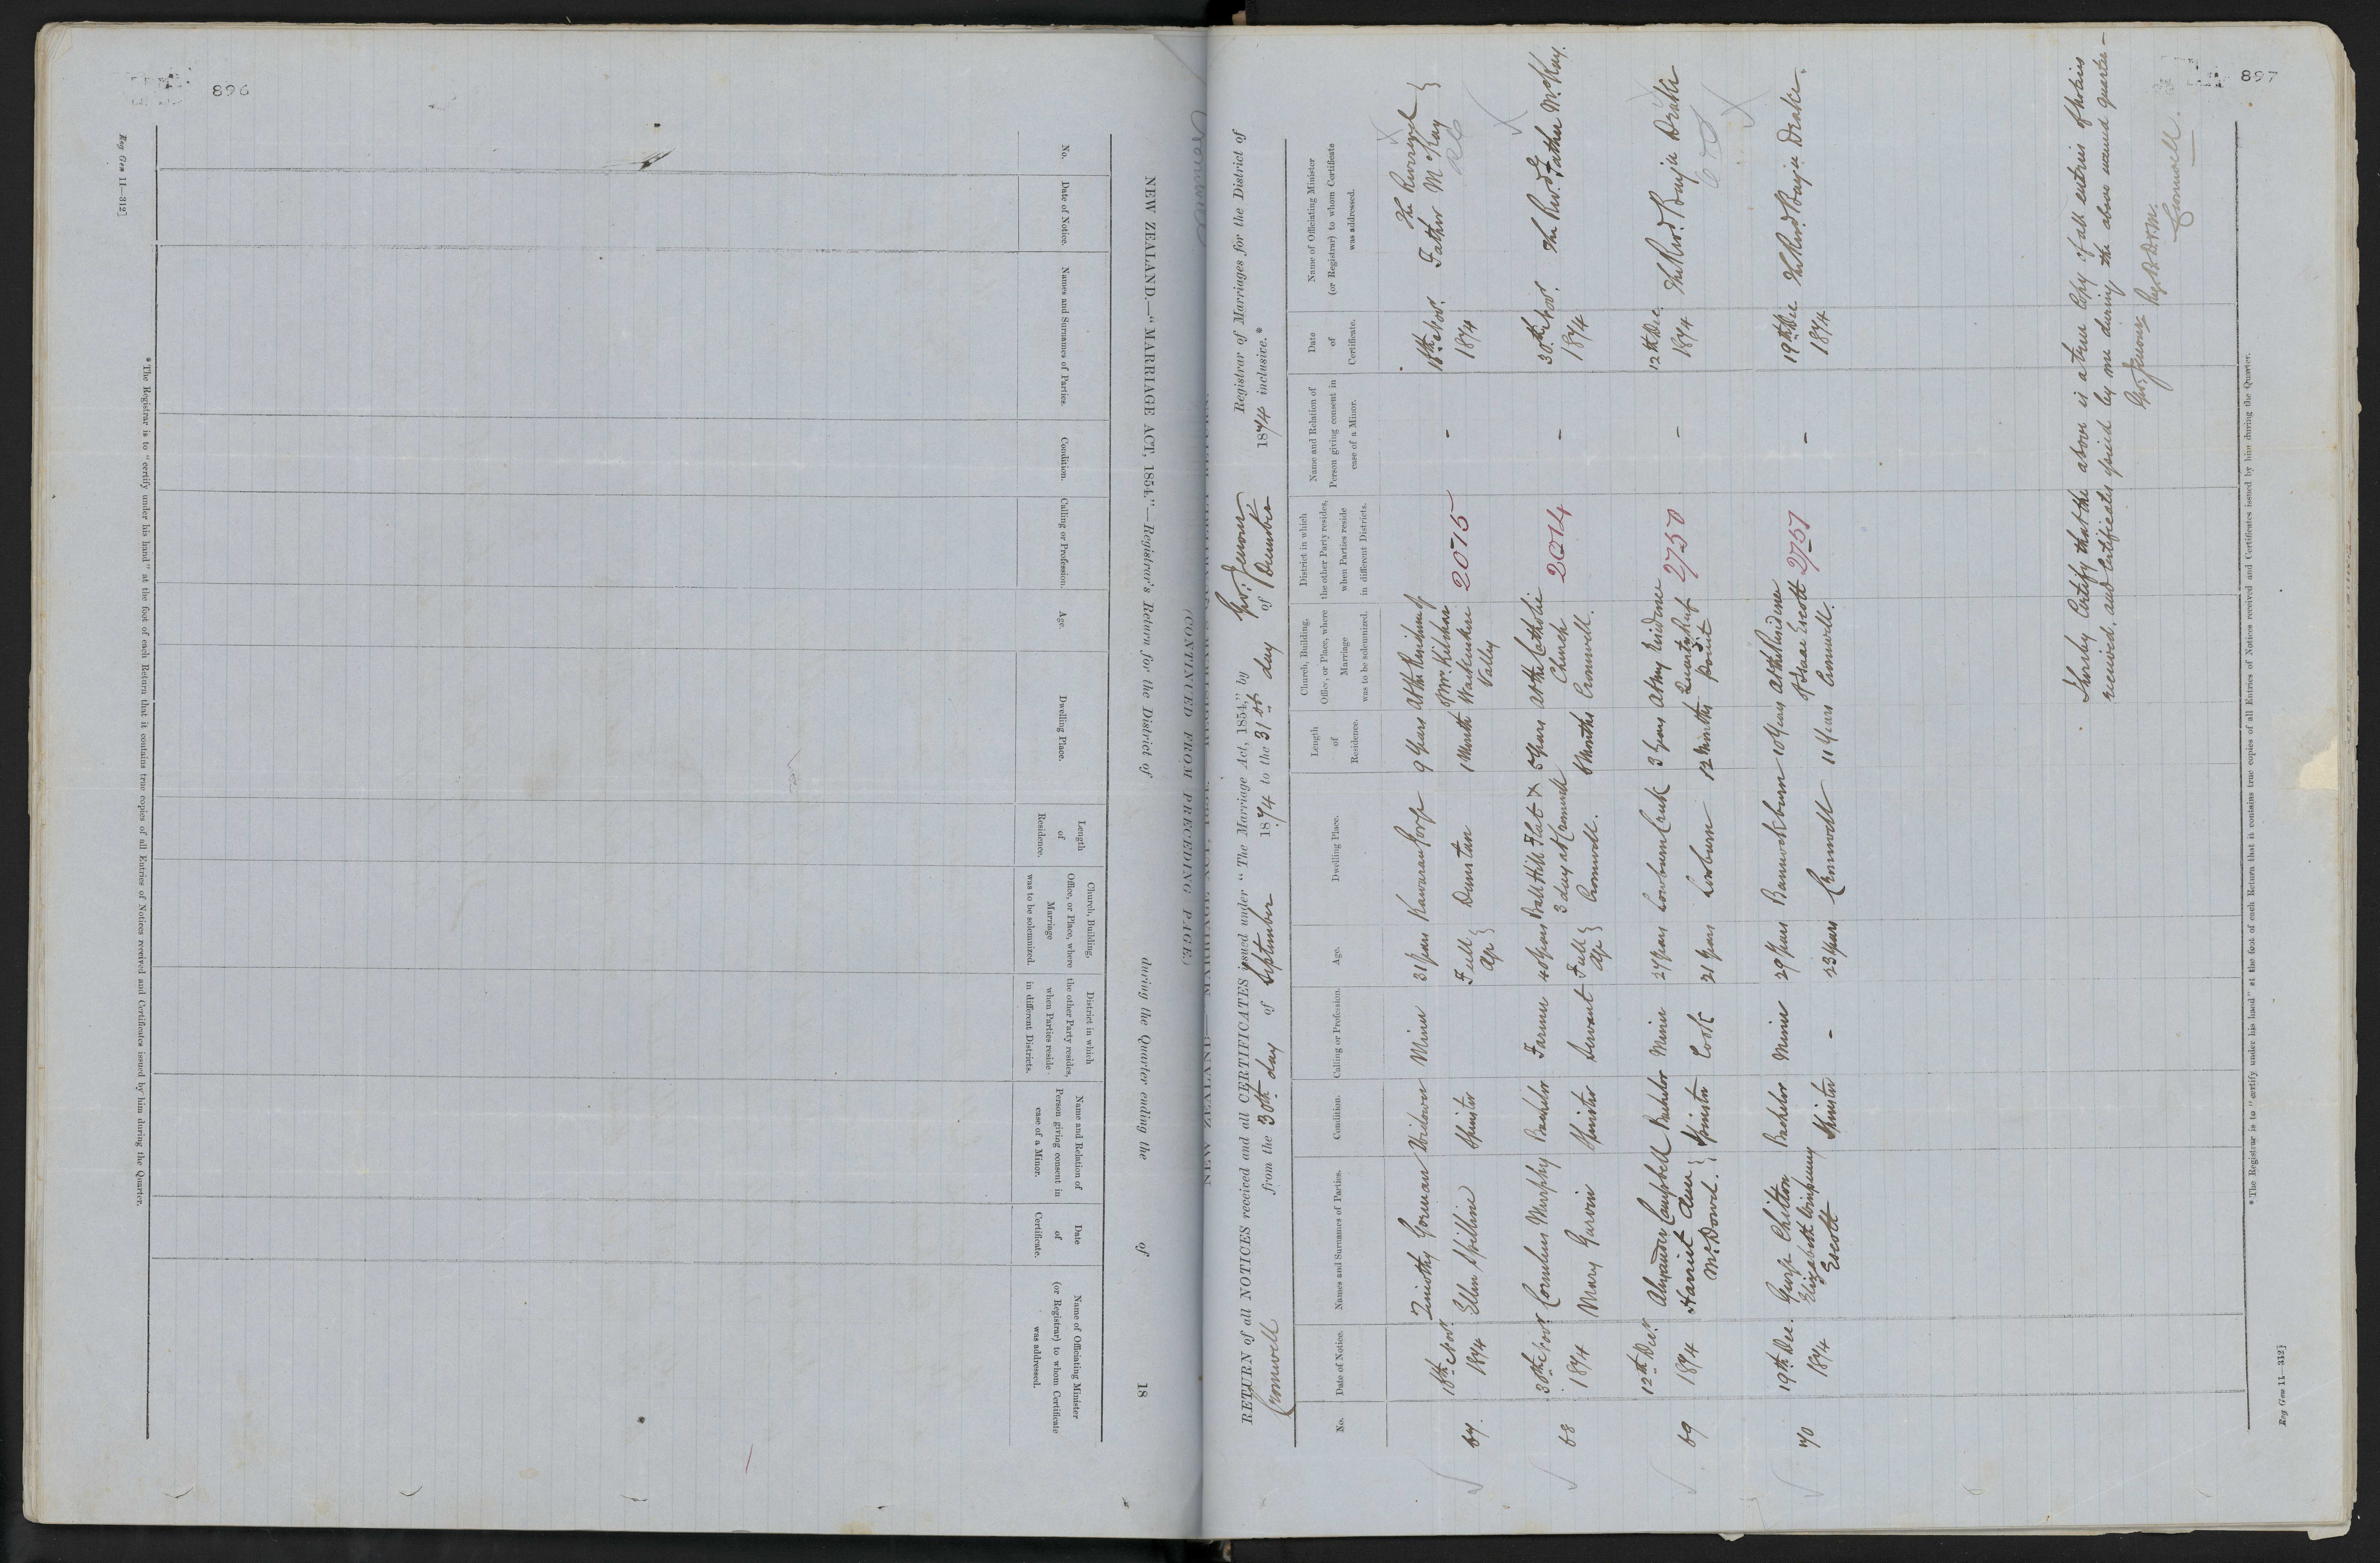 896
NEW ZEALAND.—"MARRIAGE ACT, 1854."—Registrar's Return for the District of during the Quarter ending the of 18
No.
Date of Notice.
Names and Surnames of Parties.
Condition.
Calling or Profession.
Age.
Dwelling Place.
Length of Residence.
Church, Building, Office, or Place, where Marriage was to be solemnized.
District in which the other Party resides, when Parties reside in different Districts.
Name and Relation of Person giving consent in case of a Minor.
Date of Certificate.
Name of Officiating Minister (or Registrar) to whom Certificate was addressed.
*The Registrar is to "certify under his hand" at the foot of each Return that it contains true copies of all Entries of Notices received and Certificates issued by him during the Quarter.
Reg Gen 11—312]
897
(CONTINUED FROM PRECEDING PAGE.)
RETURN of all NOTICES received and all CERTIFICATES issued under "The Marriage Act, 1854," by Registrar of Marriages for the District of
Cromwell from the 30th day of September 1874 to the 31st day of December 1874 inclusive.*
No.
Date of Notice.
Names and Surnames of Parties.
Condition.
Calling or Profession.
Age.
Dwelling Place.
Length of Residence.
Church, Building, Office, or Place, where Marriage was to be solemnized.
District in which the other Party resides, when Parties reside in different Districts.
Name and Relation of Person giving consent in case of a Minor.
Date of Certificate.
Name of Officiating Minister (or Registrar) to whom Certificate was addressed.
67. 18th Novr. Timothy Gorman Widower Miner 31 years Kawarau Gorge 9 Years At the Residence of - 18th Novr. The Reverend
1874 Ellen Spilline Spinster Full Age Dunstan 1 Month Mr. Kilshan Waikerikeri Valley 2015 1874 Father McKay
RC
68 30th Novr. Cornelius Murphy Bachelor Farmer 40 years Ball Hill Flat X 5 years At the Catholic 2014 - 30th Novr. The Revd. Father McKay.
3 days at Cromwell Church
1874 Mary Garvin Spinster Servant Full Age Cromwell. 6 Months Cromwell. 1874
69 12th Decr. Alexander Campbell Bachelor Miner 27 years Lowburn Creek 3 years At my Residence 2750 - 12th Dec. The Revd. Benjn Drake
1874 Harriet Ann McDowel. Spinster Cook 21 years Lowburn 12 Months Quartz Reef Point 1874
70 19th Dec. George Chilton Bachelor Miner 29 Years Bannockburn 10 Years At the Residence - 19th Dec The Revd Benjn Drake.
1874 Elizabeth Escott Spinster - 23 Years Cromwell 11 Years of Isaac Escott Cromwell. 2751 1874
I hereby Certify that the above is a true Copy of all entries of Notices
received, and Certificates issued by me during the above named quarter—
Cromwell.
*The Registrar is to "certify under his hand" at the foot of each Return that it contains true copies of all Entries of Notices received and Certificates issued by him during the Quarter.
Reg Gen 11—312]